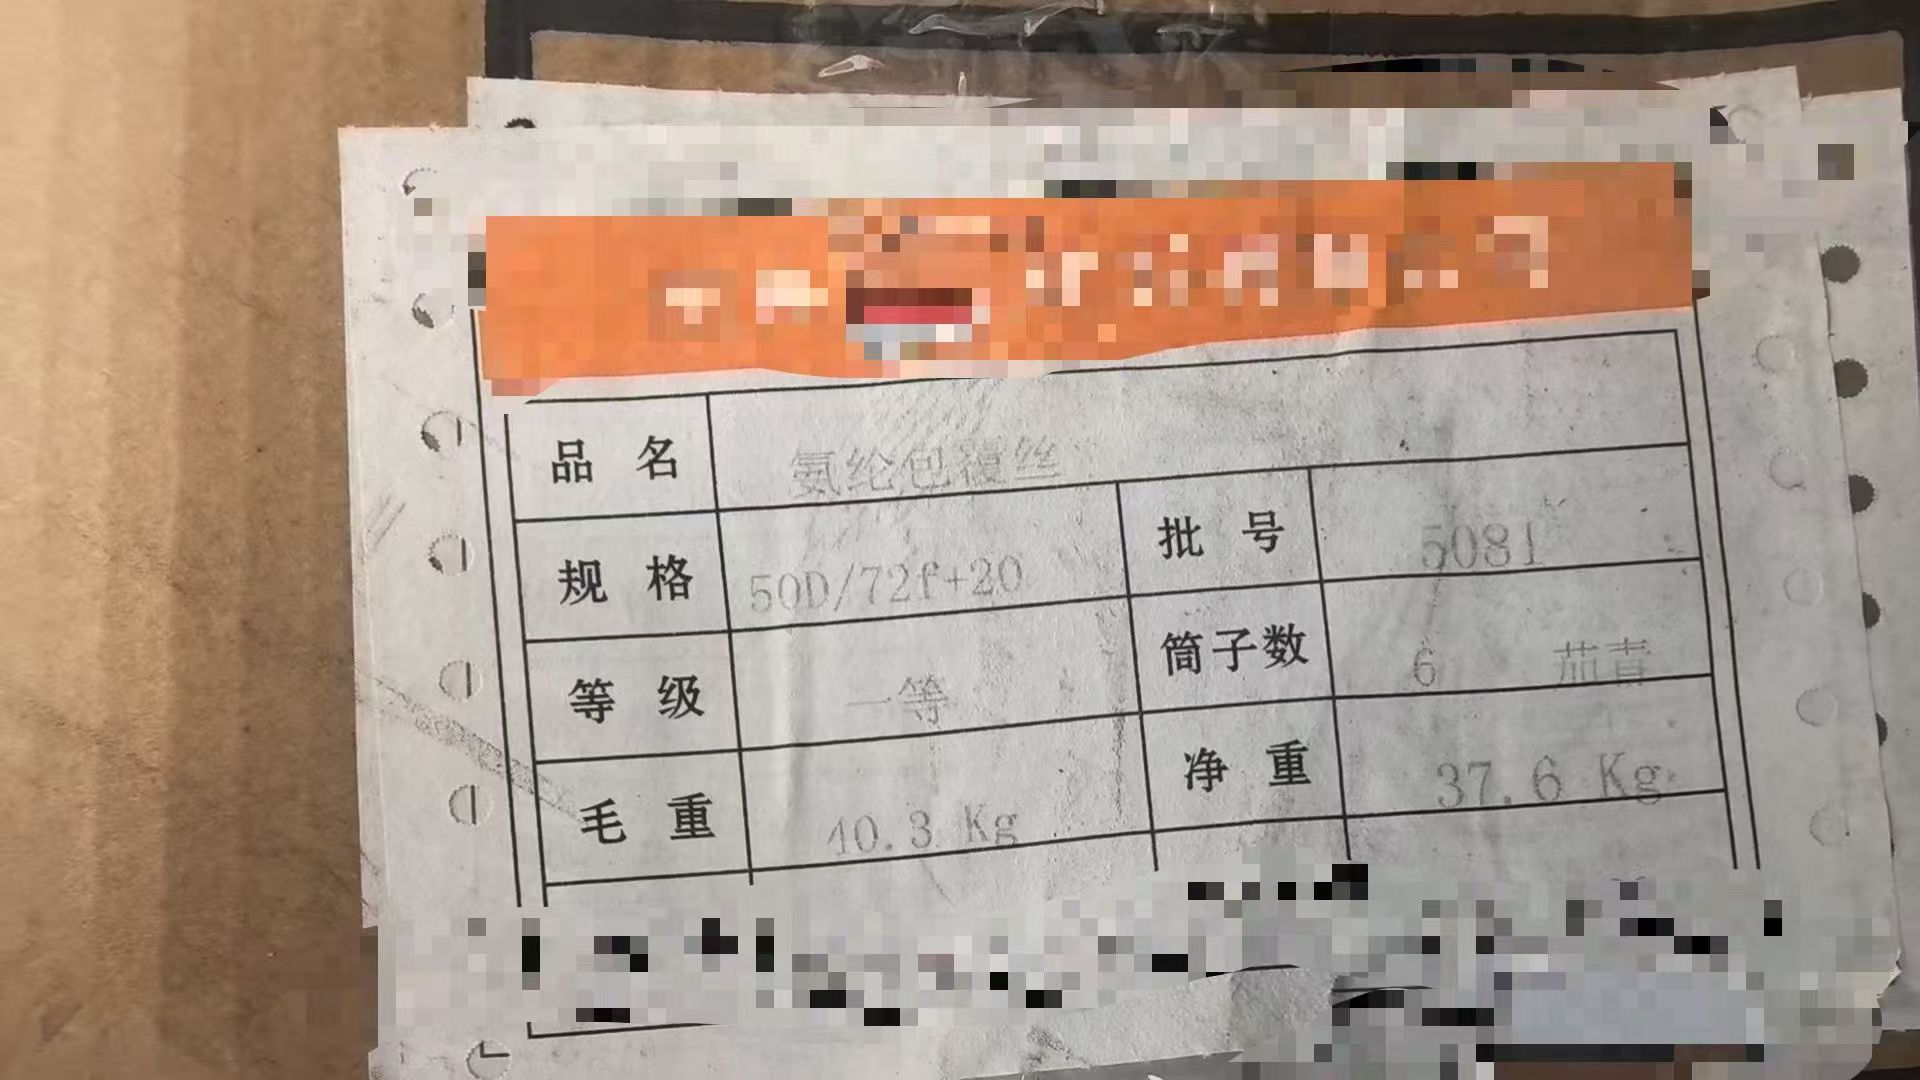 品 名 氨纶包覆丝
规 格 50D/72f+20 批 号 5081
等 级 一等 筒子数 6 茄青
毛 重 40.3 Kg 净 重 37.6 Kg